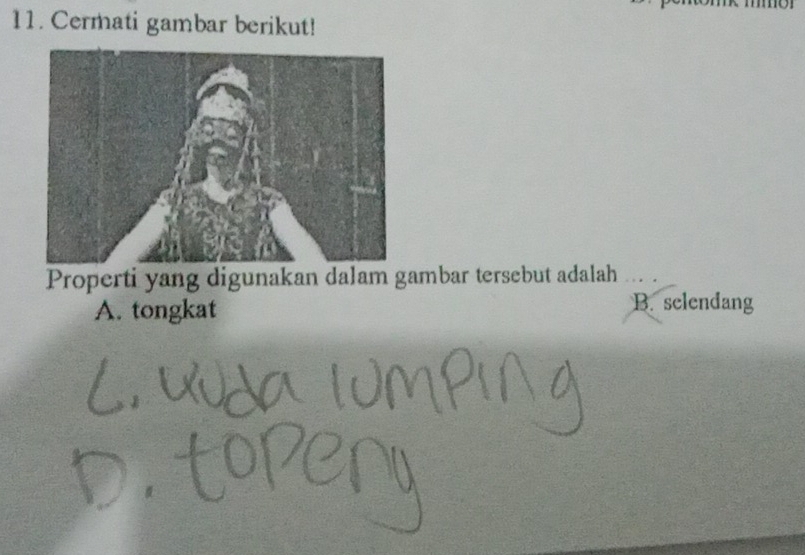 11. Cermati gambar berikut!
Properti yang digunakan dalam gambar tersebut adalah ... .
A. tongkat
B. selendang
C. kuda lumping
D. topeng